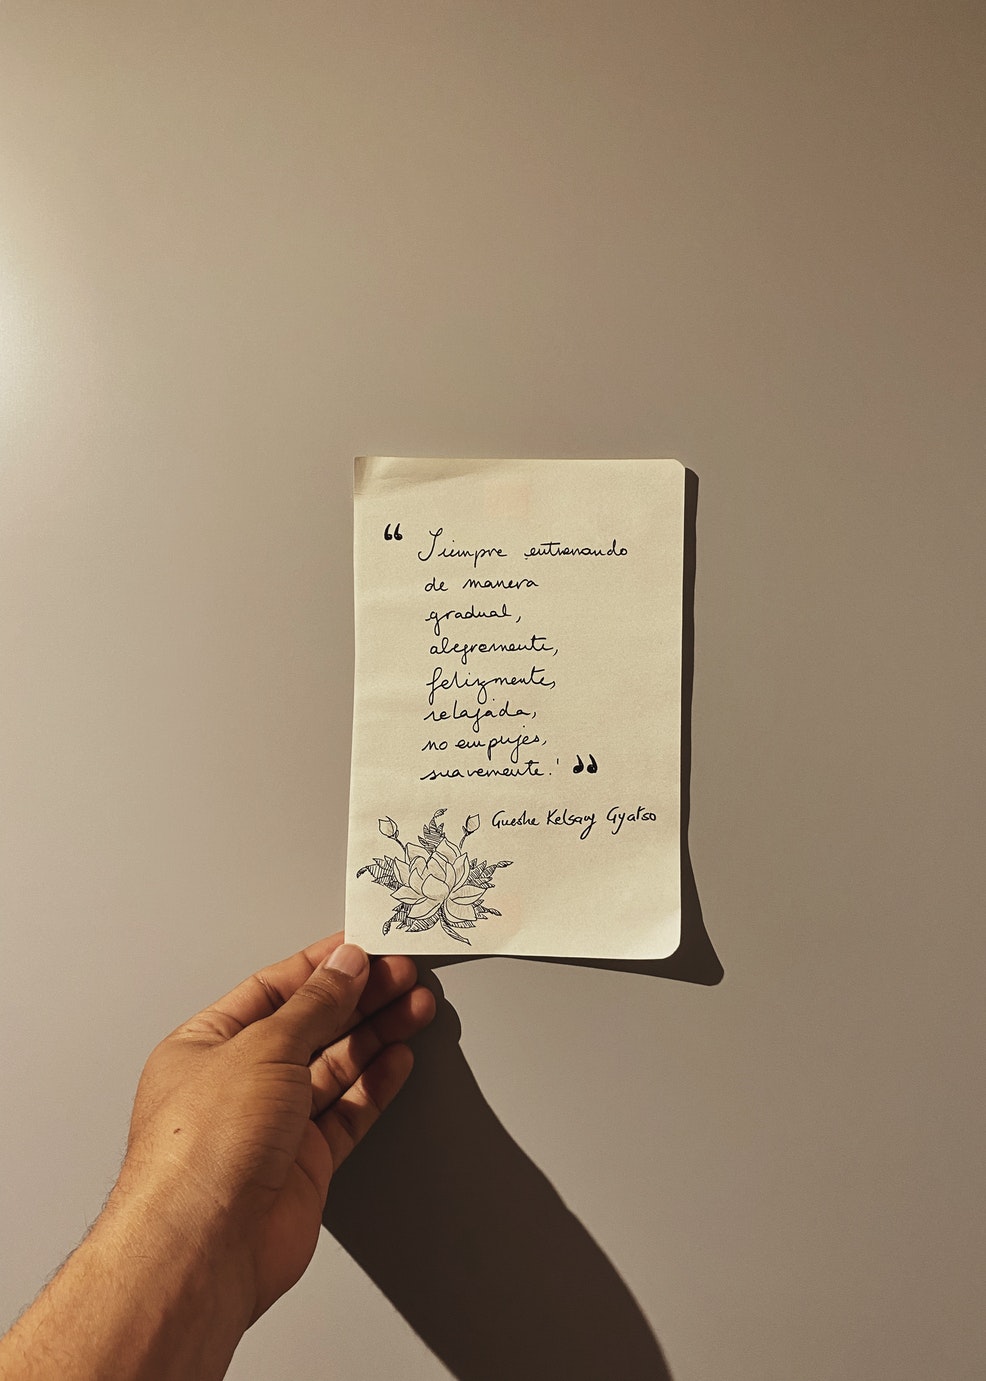 “ Siempre entrenando
de manera
gradual,
alegremente,
felizmente,
relajada,
no empujes,
suavemente.' ”
Gueshe Kelsang Gyatso